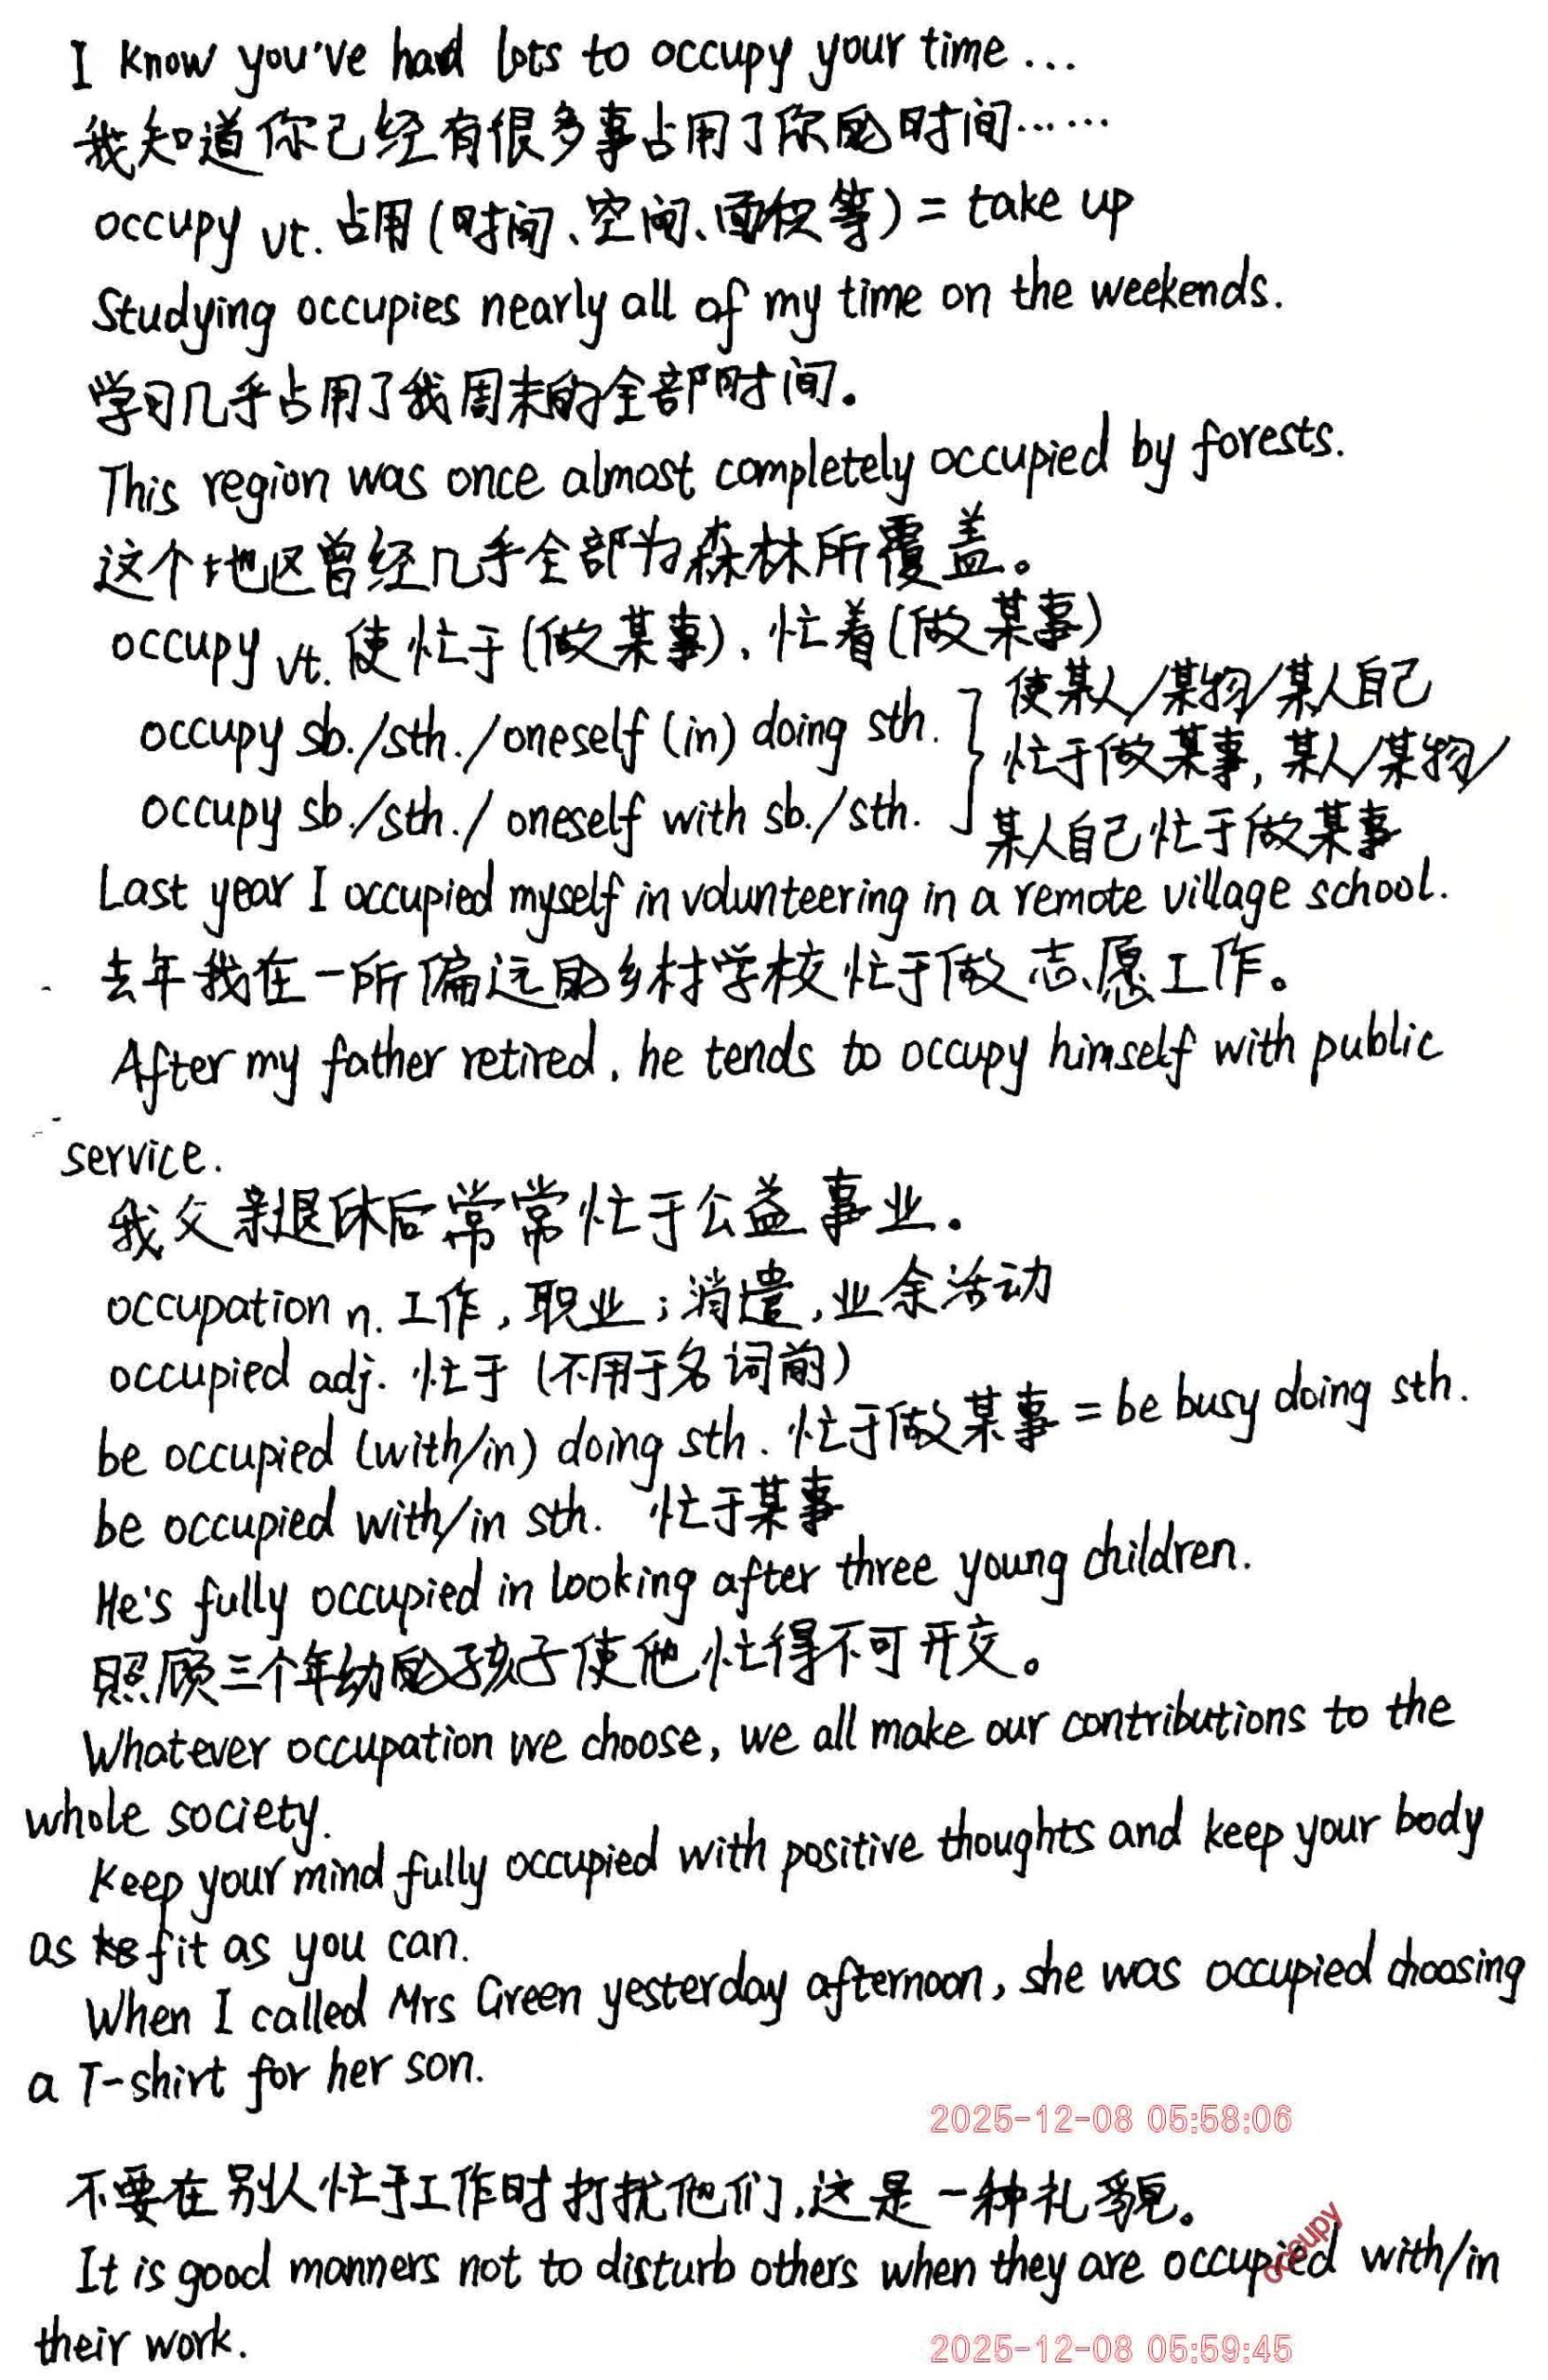 I know you've had lots to occupy your time...
我知道你已经有很多事占用了你的时间……
occupy vt. 占用(时间、空间、面积等) = take up
Studying occupies nearly all of my time on the weekends.
学习几乎占用了我周末的全部时间。
This region was once almost completely occupied by forests.
这个地区曾经几乎全部为森林所覆盖。
occupy vt. 使忙于(做某事)、忙着(做某事)
occupy sb./sth./oneself (in) doing sth.
occupy sb./sth./oneself with sb./sth.
使某人/某物/某人自己
忙于做某事, 某人/某物/
某人自己忙于做某事
Last year I occupied myself in volunteering in a remote village school.
去年我在一所偏远的乡村学校忙于做志愿工作。
After my father retired, he tends to occupy himself with public
service.
我父亲退休后常常忙于公益事业。
occupation n. 工作,职业;消遣,业余活动
occupied adj. 忙于(不用于名词前)
be occupied (with/in) doing sth. 忙于做某事 = be busy doing sth.
be occupied with/in sth. 忙于某事
He's fully occupied in looking after three young children.
照顾三个年幼的孩子使他忙得不可开交。
Whatever occupation we choose, we all make our contributions to the
whole society.
Keep your mind fully occupied with positive thoughts and keep your body
as fit as you can.
When I called Mrs Green yesterday afternoon, she was occupied choosing
a T-shirt for her son.
2025-12-08 05:58:06
不要在别人忙于工作时打扰他们,这是一种礼貌。
occupy
It is good manners not to disturb others when they are occupied with/in
their work.
2025-12-08 05:59:45